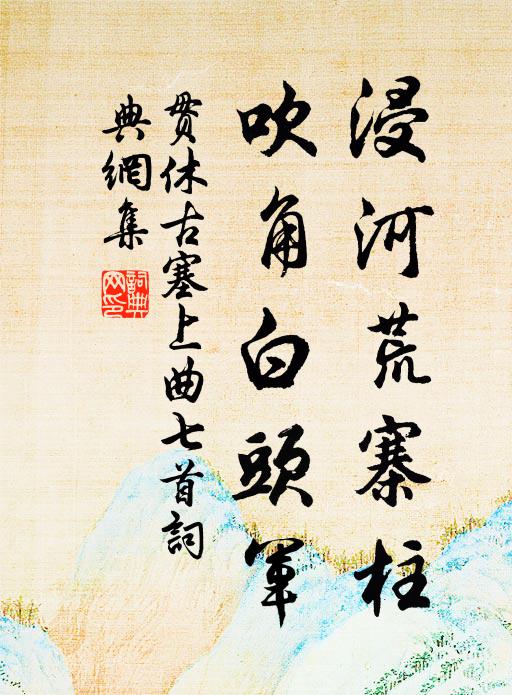 浸河荒寨柱
吹角白頭軍
贯休古塞上曲七首詞
典網集
詞典
网印